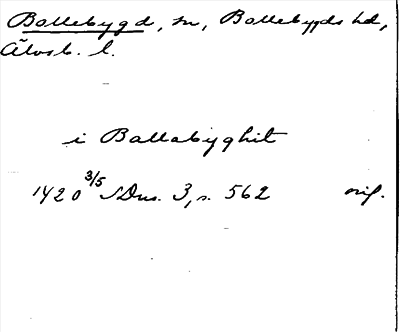 Bollebygd, sn, Bollebygds hd,
Älvsb. l.
i Ballabyghit
1420 3/5 SDns. 3, s. 562 orig.